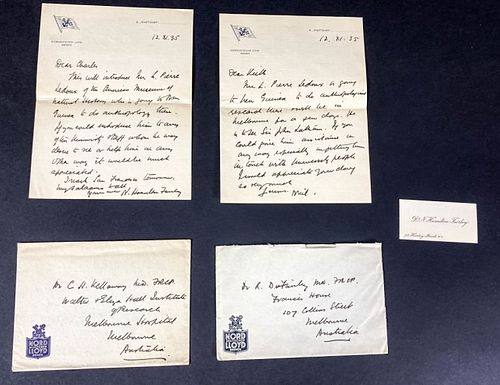 12. XI. 35
Dear Charles
This will introduce Mr L. Pierre
Ledoux of the American Museum of
Natural History who is going to New
Guinea to do anthropology there.
If you could introduce him to any
of the University staff when he
down to see or help him in any
other way it would be much
appreciated.
I reach San Francisco tomorrow.
N. Hamilton Fairley
12. XI. 35
Dear Keith
Mr L. Pierre Ledoux is going
to New Guinea to do anthropological
research there and will be in
Melbourne for a few days. He
is to Mr Sir John Latham. If you
could give him assistance in
any way especially in getting him
in touch with University people
I would appreciate your doing
so very much
Yours Neil.
Dr N. Hamilton Fairley
Dr C. H. Kellaway MD. FRCP
Walter & Eliza Hall Institute
of Research
Melbourne Hospital
Melbourne
Australia.
NORD
LLOYD
Dr K. D. Fairley MD. FRCP.
Francis House
107 Collins Street
Melbourne
Australia
NORD
LLOYD